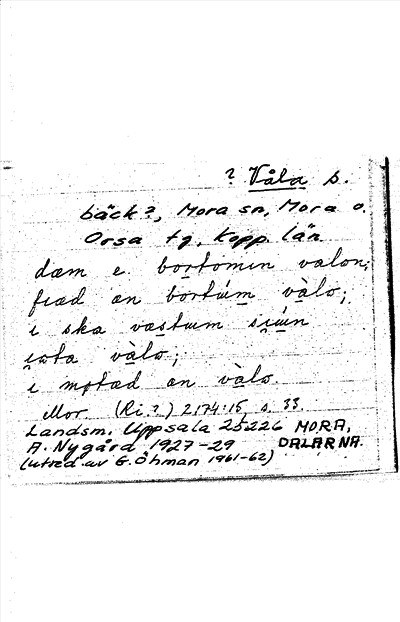 ? Våla b.
bäck?, Mora sn, Mora o.
Orsa tg, Kopp. län
dæm e bortomin valon;
fræd an bortúm vàlo;
i ska væstum siún
ita vàlo;
i motæd an vàlo.
Mor. (Ri.?) 2174:15, s. 33.
Landsm. Uppsala 25226 MORA,
A. Nygård 1927-29 DALARNA.
(utred. av G. Öhman 1961-62)